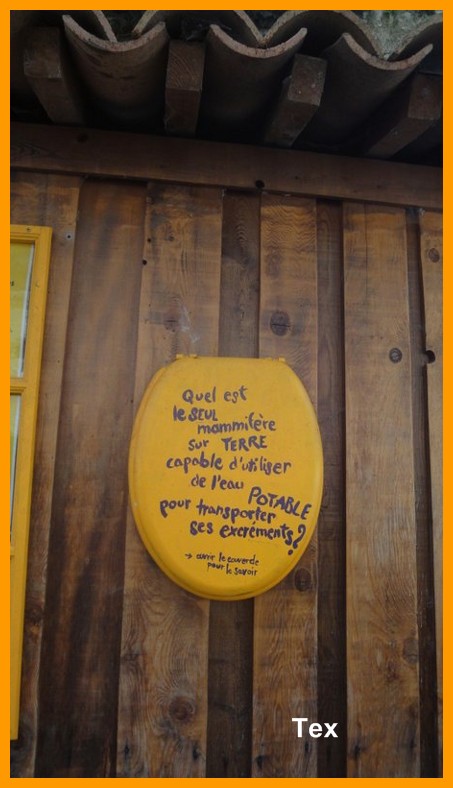 Quel est
le SEUL
mammifère
sur TERRE
capable d'utiliser
de l'eau
POTABLE
pour transporter
ses excréments?
→ ouvrir le couvercle
pour le savoir
Tex